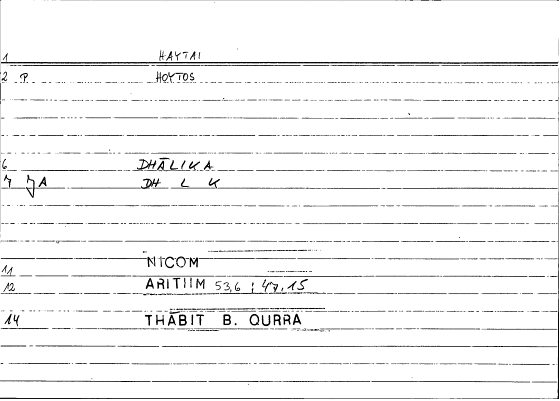 1 HAYTAI
2 P. HOYTOS
6 DHĀLIKA
7 JA DH L K
11 NICOM
12 ARITIIM 53,6 ; 47,15
14 THĀBIT B. QURRA